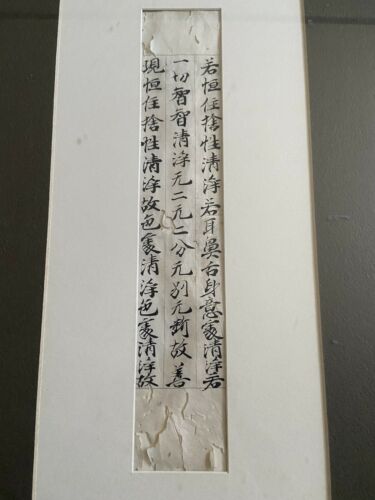 若恒住捨性清淨若耳鼻舌身意處清淨若
一切智智清淨无二无二分无別无斷故善
現恒住捨性清淨故色處清淨色處清淨故